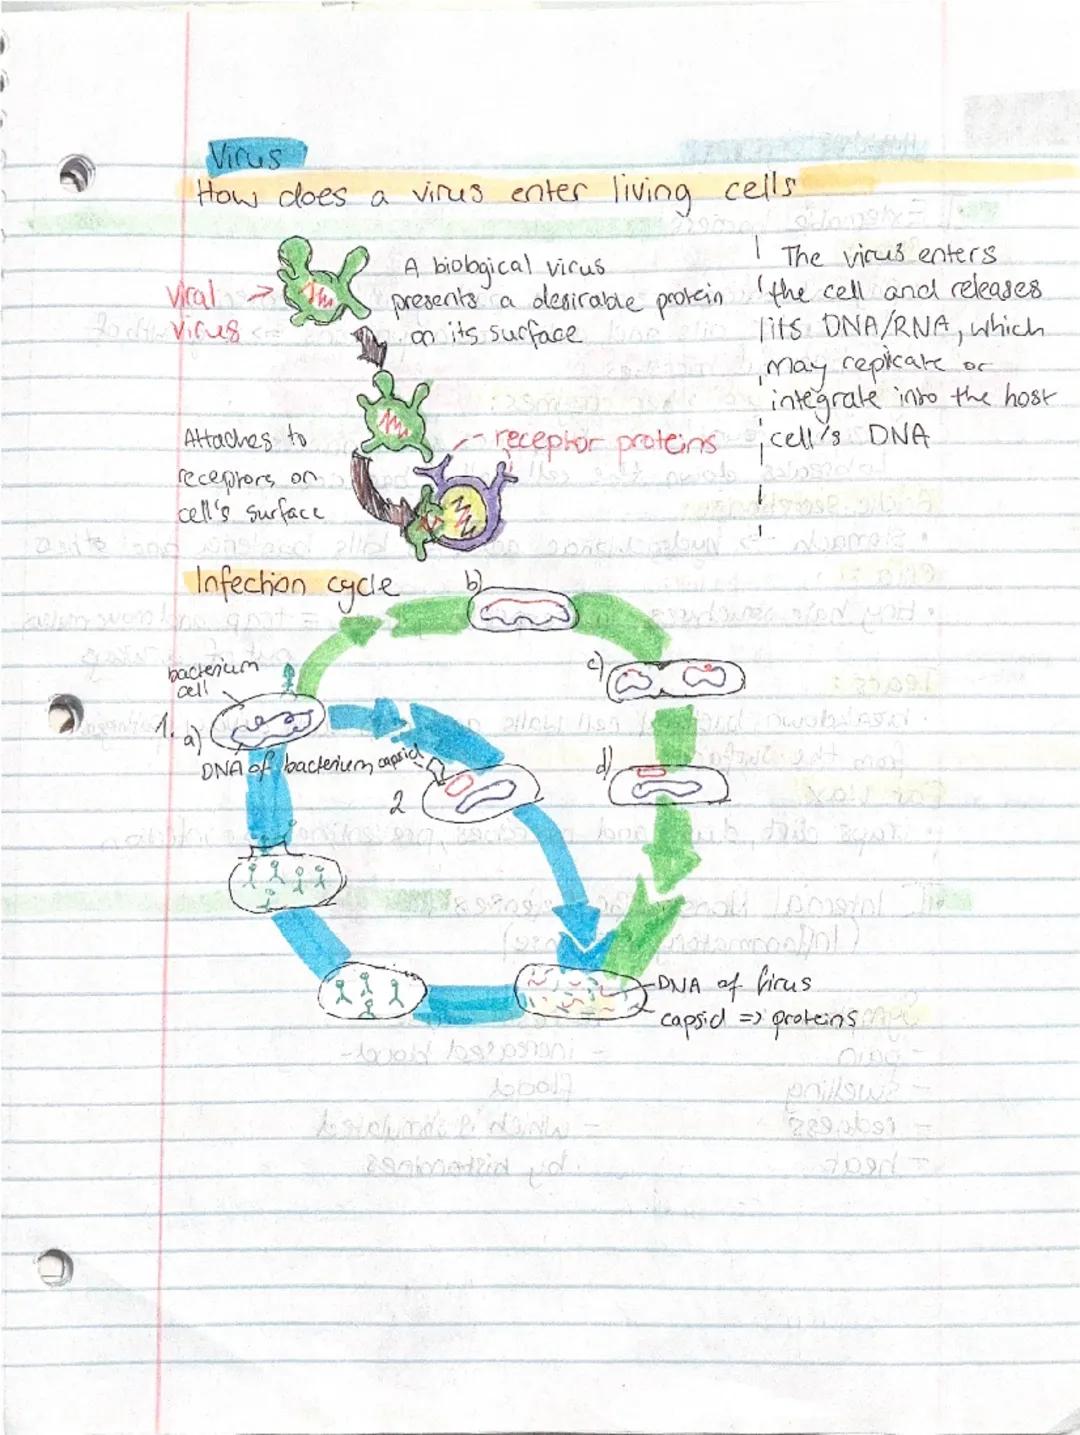 Virus
How does a virus enter living cells
viral
virus
A biological virus
presents a desirable protein
on its surface
Attaches to
receptors on
cell's surface
receptor proteins
The virus enters
the cell and releases
its DNA/RNA, which
may replicate or
integrate into the host
cell's DNA
Infection cycle
b)
bacterium
cell
c)
1.
a)
DNA of bacterium
capsid
d)
2
DNA of virus
capsid => proteins